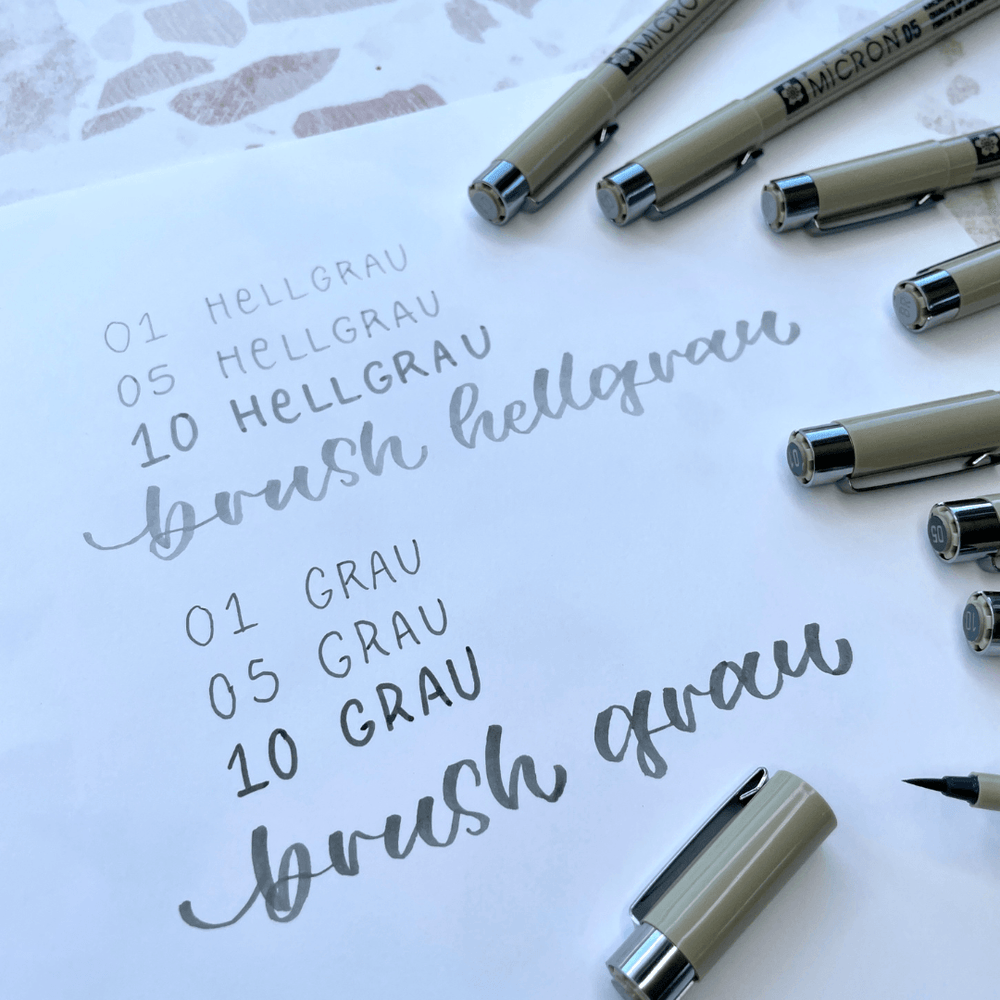 MICRO
MICRON 05
01 HeLLGRAU
05 HeLLGRAU
10 HeLLGRAU
brush hellgrau
01 GRAU
05 GRAU
10 GRAU
brush grau
05
10